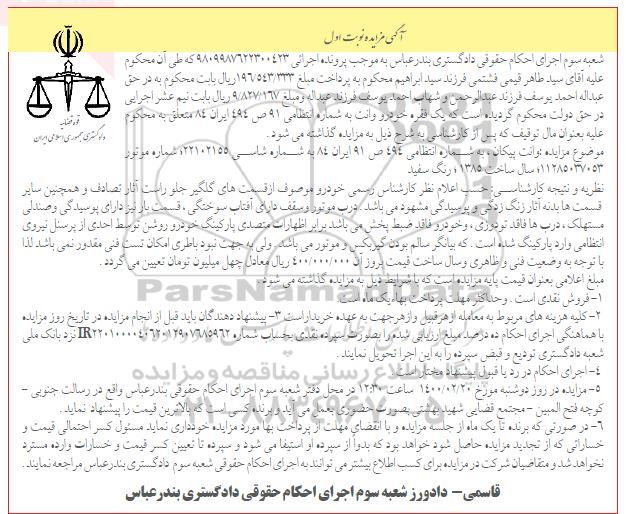 آگهی مزایده نوبت اول
قوه قضائیه
دادگستری جمهوری اسلامی ایران
شعبه سوم اجرای احکام حقوقی دادگستری بندرعباس به موجب پرونده اجرائی ۹۸۰۹۹۸۷۶۲۲۳۰۰۴۲۳ که طی آن محکوم
علیه آقای سید طاهر قیمی فشتمی فرزند سید ابراهیم محکوم به پرداخت مبلغ ۱۹۶/۵۴۳/۳۳۳ ریال بابت محکوم به در حق
عبداله احمد یوسف فرزند عبدالرحمن و شهاب احمد یوسف فرزند عبداله ومبلغ ۹/۸۲۷/۱۶۷ ریال بابت نیم عشر اجرایی
در حق دولت محکوم گردیده است که یک فقره خودرو وانت به شماره انتظامی ۹۱ ص ۴۹۴ ایران ۸۴ متعلق به محکوم
علیه بعنوان مال توقیف که پس از کارشناسی به شرح ذیل به مزایده گذاشته می شود .
موضوع مزایده :وانت پیکان ، به شماره انتظامی ۴۹۴ ص ۹۱ ایران ۸۴ به شماره شاسی ۲۲۱۰۲۱۵۵: شماره موتور
۱۱۲۸۵۰۳۷۰۵۳: سال ساخت ۱۳۸۵ ؛ رنگ سفید
نظریه و نتیجه کارشناسی: حسب اعلام نظر کارشناس رسمی خودرو موصوف ازقسمت های گلگیر جلو راست آثار تصادف و همچنین سایر
قسمت ها بدنه آثار زنگ زدگی و پوسیدگی مشهود می باشد . درب موتور وسقف دارای آفتاب سوختگی ، قسمت بار نیز دارای پوسیدگی وصندلی
مستهلک ، درب ها فاقد تودوزی ، وخودرو فاقد ضبط پخش می باشد برابر اظهارات متصدی پارکینگ خودرو روشن توسط احدی از پرسنل نیروی
انتظامی وارد پارکینگ شده است . که بیانگر سالم بودن گیربکس و موتور می باشد . ولی به جهت نبود باطری امکان تست فنی مقدور نمی باشد لذا
با توجه به وضعیت فنی و ظاهری وسال ساخت قیمت بروز آن ۴۰۰/۰۰۰/۰۰۰ ریال معادل چهل میلیون تومان تعیین می گردد .
مبلغ اعلامی بعنوان قیمت پایه مزایده است که با شرایط ذیل به مزایده گذاشته می شود .
۱- فروش نقدی است . وحداکثر مهلت پرداخت بهاء یک ماه است
۲- کلیه هزینه های مربوط به معامله ازهرقبیل وازهرجهت به عهده خریداراست ۳- پیشنهاد دهندگان باید قبل از انجام مزایده در تاریخ روز مزایده
با هماهنگی اجرای احکام ده درصد مبلغ ارزیابی شده را بصورت سپرده نقدی بحساب شماره IR۲۲۰۱۰۰۰۰۴۰۶۲۰۱۲۹۰۷۶۸۵۹۶۲ نزد بانک ملی
شعبه دادگستری تودیع و قبض سپرده را به این اجرا تحویل نمایند .
۴- اجرای احکام در رد یا قبول پیشنهاد مختار است .
۵- مزایده در روز دوشنبه مورخ ۱۴۰۰/۰۲/۲۰ ساعت ۱۲:۳۰ در محل دفتر شعبه سوم اجرای احکام حقوقی بندرعباس واقع در رسالت جنوبی -
کوچه فتح المبین - مجتمع قضایی شهید بهشتی بصورت حضوری بعمل می آید وبرنده کسی است که بالاترین قیمت را پیشنهاد نماید .
۶- در صورتی که برنده تا یک ماه از جلسه مزایده و با انقضای مهلت از پرداخت بها مورد مزایده خودداری نماید مسئول کسر احتمالی قیمت و
خساراتی که از تجدید مزایده حاصل شود خواهد بود که بدواً از سپرده او استیفا می شود و سپرده تا تعیین کسر قیمت و خسارات وارده مسترد
نخواهد شد و متقاضیان شرکت در مزایده برای کسب اطلاع بیشتر می توانند به اجرای احکام حقوقی شعبه سوم دادگستری بندرعباس مراجعه نمایند .
قاسمی- دادورز شعبه سوم اجرای احکام حقوقی دادگستری بندرعباس